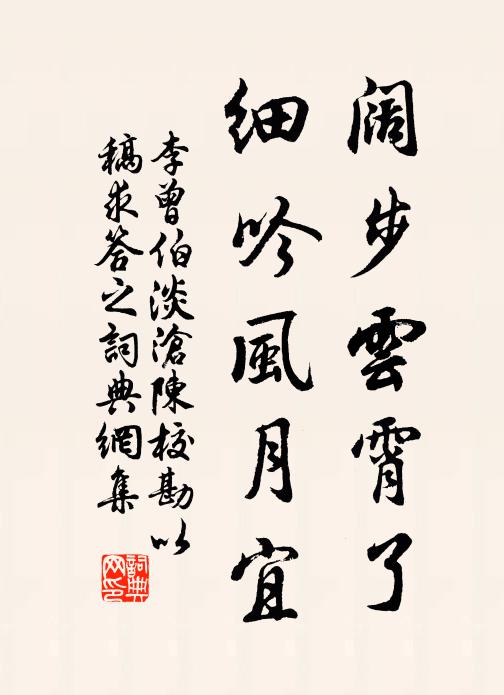 阔步雲霄了
细吟風月宜
李曾伯淡滄陳校勘以
稿求答之詞典網集
詞典网印